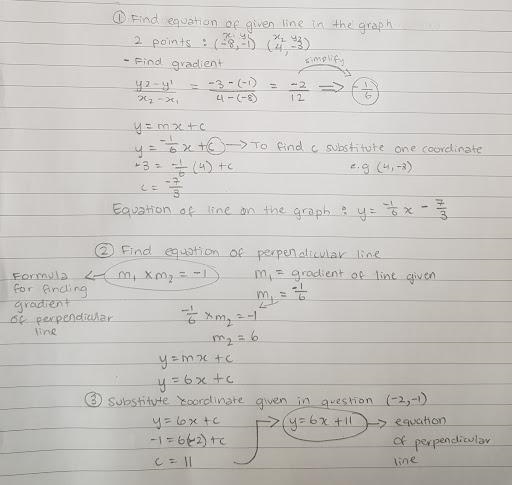 ① Find equation of given line in the graph
2 points : (-8,-1) (4,-3)
x₁ y₁ x₂ y₂
- Find gradient
simplify
y2 - y1 / x₂ - x₁ = -3 - (-1) / 4 - (-8) = -2 / 12 ⇒ -1/6
y = mx + c
y = -1/6 x + c → To find c substitute one coordinate
-3 = -1/6 (4) + c e.g (4,-3)
c = -7/3
Equation of line on the graph : y = -1/6 x - 7/3
② Find equation of perpendicular line
Formula for finding gradient of perpendicular line ← m₁ × m₂ = -1
m₁ = gradient of line given
m₁ = -1/6
-1/6 × m₂ = -1
m₂ = 6
y = mx + c
y = 6x + c
③ Substitute coordinate given in question (-2,-1)
y = 6x + c
-1 = 6(-2) + c
c = 11
y = 6x + 11 → equation of perpendicular line